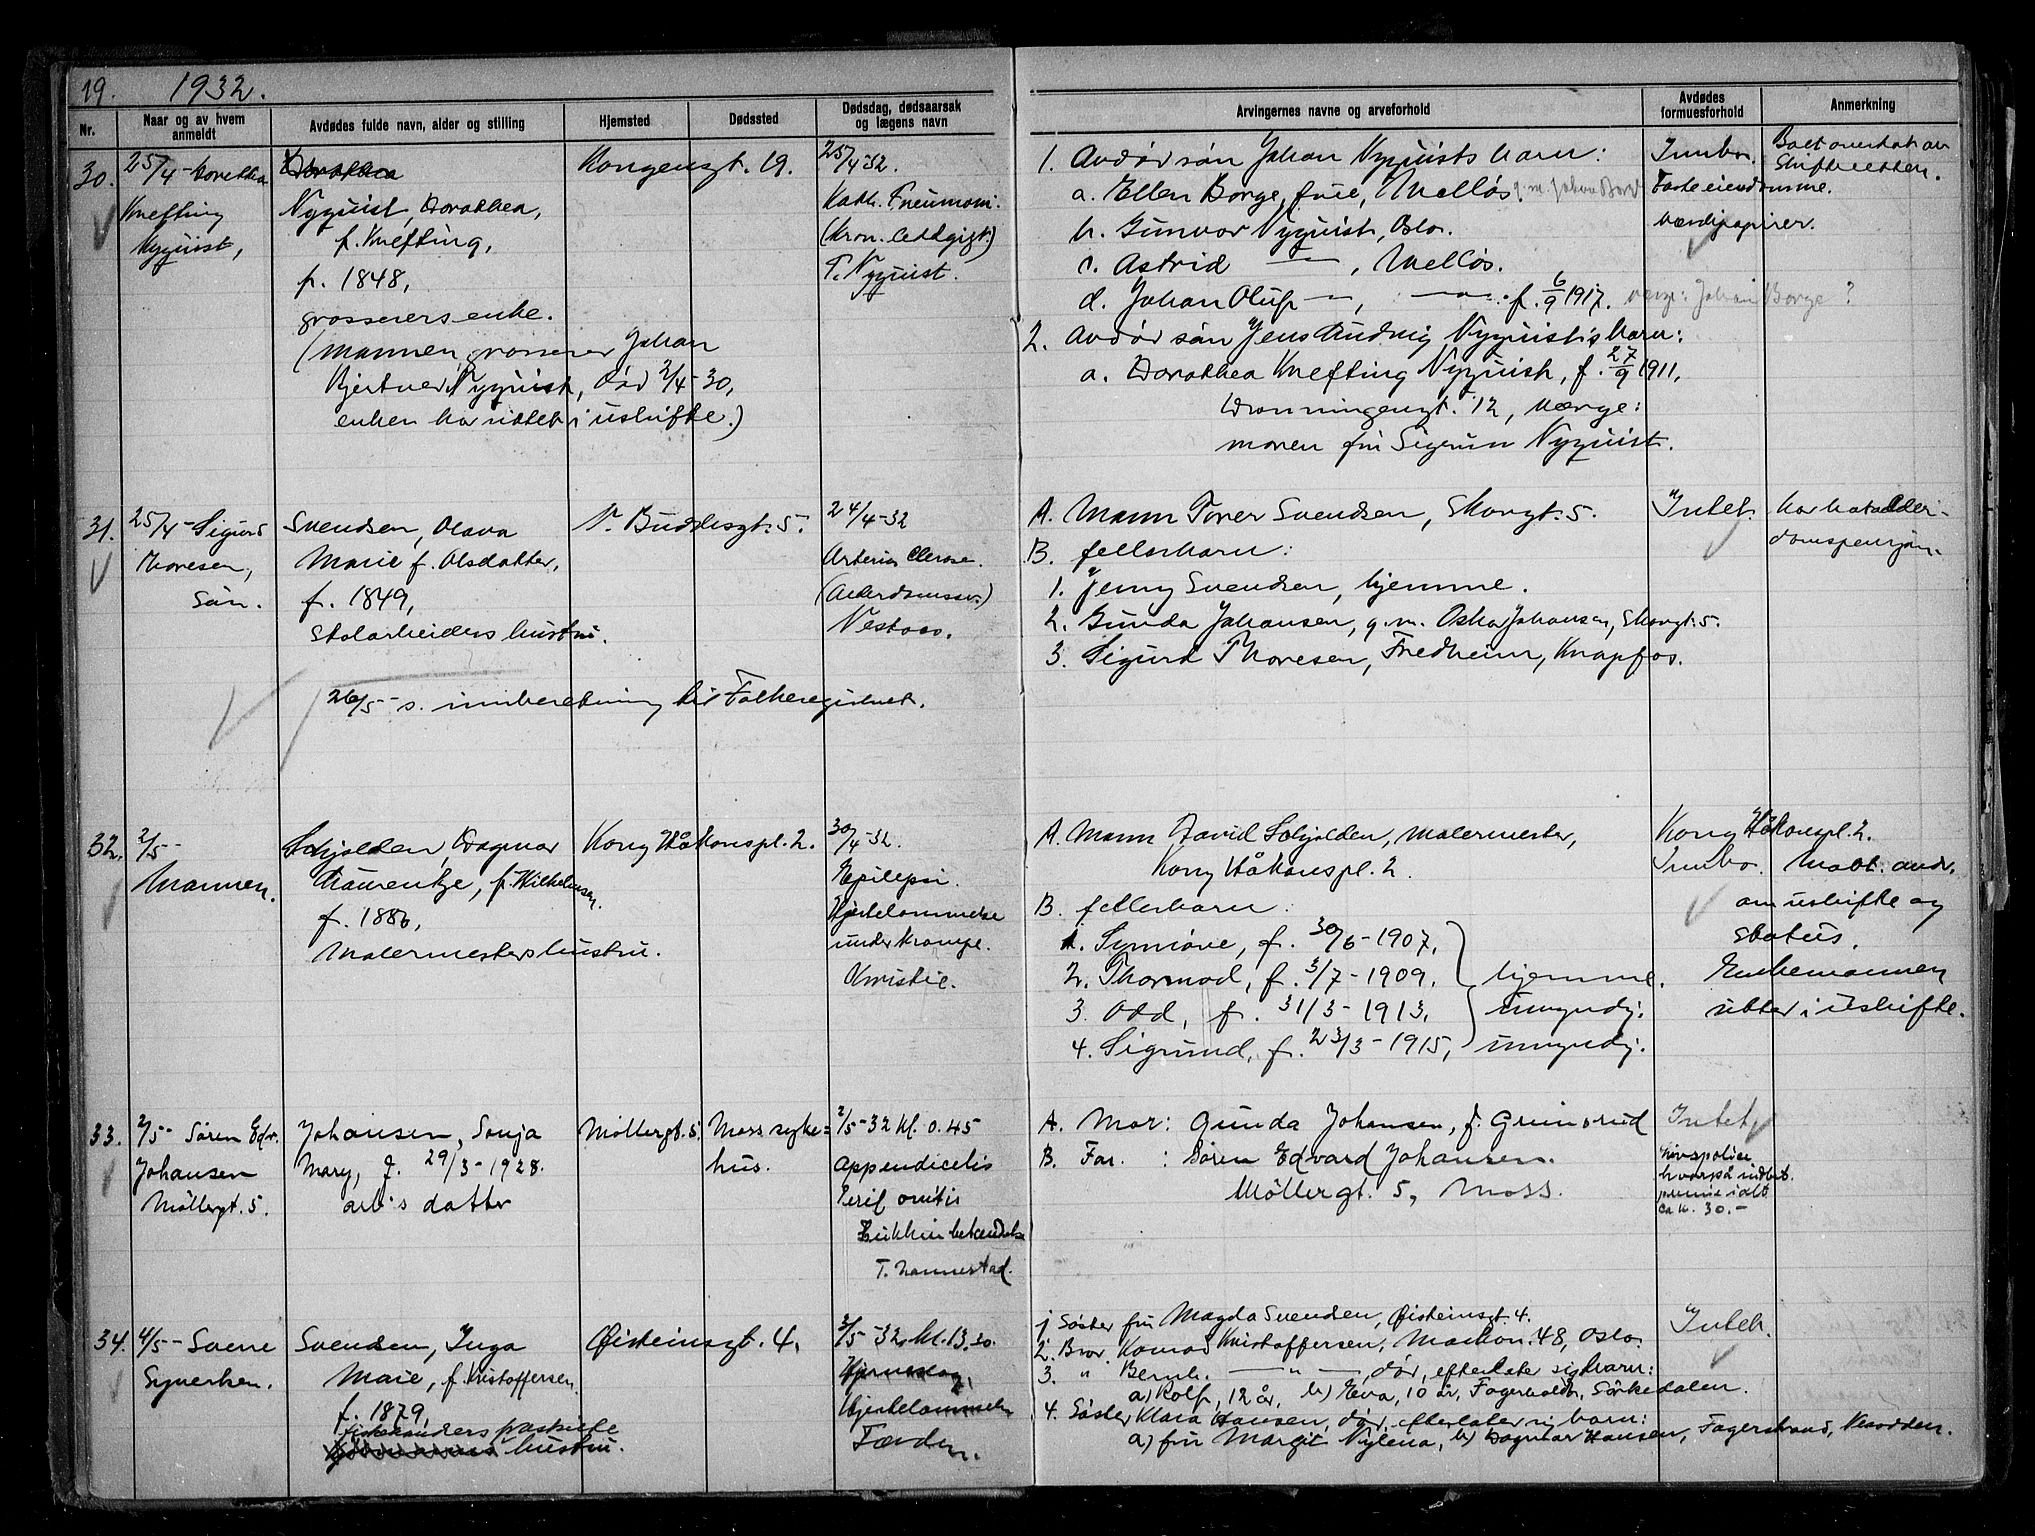 19. 1932.
Nr.
Naar og av hvem anmeldt
Avdødes fulde navn, alder og stilling
Hjemsted
Dødssted
Dødsdag, dødsaarsak og lægens navn
Arvingernes navne og arveforhold
Avdødes formuesforhold
Anmerkning
30.
25/4 - Dorothea
Knefting
Nyquist,
Dorothea
Nyquist, Dorothea,
f. Knefting,
f. 1848,
grosserers enke.
(mannen, grosserer Johan
Kjertner Nyquist, død 2/4-30,
enken har sittet i uskifte.)
Kongensgt. 19.
25/4-32.
Kath. Pneumoni.
T. Nyquist.
1. Avdød søn Johan Nyquists barn:
a. Ellen Borge, frue, Melløs. g.m. Johan Borge
b. Gunvor Nyquist, Oslo.
c. Astrid — , Melløs.
d. Johan Oluf — , — . f. 6/9 1917. verge: Johan Borge ?
2. Avdød søn Jens Ludvig Nyquists barn:
a. Dorothea Knefting Nyquist, f. 27/9 1911,
Dronningensgt. 12, verge:
moren fru Sigrun Nyquist.
Innbo.
Faste eiendomme.
Verdipapirer.
Boet overtatt av
Skifteretten.
31.
25/4 - Sigurd
Thoresen,
Søn.
Svendsen, Olava
Marie f. Olsdatter,
f. 1849,
Stolarbeiders hustru.
26/5 - s. innberetning til Folkeregistret.
N. Buddesgt. 5.
24/4-32
Arterio Clerose.
Vestaas.
A. Mann Tover Svendsen, Skovgt. 5.
B. fellesbarn:
1. Jenny Svendsen, hjemme.
2. Gunda Johansen, g.m. Oskar Johansen, Skovgt. 5.
3. Sigurd Thoresen, Fredheim, Knapfos.
Intet.
har hat alder-
domspensjon.
32.
2/5 -
Mannen.
Schjolden, Dagmar
Laurentze, f. Wilhelmsen.
f. 1886,
Malermesters hustru.
Kong Håkonspl. 2.
30/4-32.
Epilepsi.
Hjertelammelse
under krampe.
Christie.
A. Mann David Schjolden, malermester,
Kong Håkonspl. 2.
B. fellesbarn:
1. Synnöve, f. 30/6-1907,
2. Thormod, f. 3/7-1909, hjemme.
3. Odd, f. 31/3-1913, umyndig.
4. Sigrund, f. 23/3-1915, umyndig.
Kong Håkonspl. 2.
Innbo.
Mott. andr.
om uskifte og
status.
Enkemannen
sitter i uskifte.
33.
2/5 - Søren Edv.
Johansen
Møllergt. 5.
Johansen, Sonja
Mary, f. 29/3-1928.
arb's datter
Møllergt. 5.
Moss syke=
hus.
2/5-32 kl. 0.45
Appendicetis
T. Hannestad.
A. Mor: Gunda Johansen, f. Grimsrud
B. Far: Søren Edvard Johansen.
Møllergt. 5, Moss.
Intet
Livspolise
hvorpå indbet.
premie ialt
ca kr. 30.-
34.
4/5 - Svene
Synerken.
Svendsen, Inga
Marie, f. Kristoffersen
f. 1879,
hustru.
Øisteinsgt. 4.
3/5-32, kl. 13.30.
Hjerneslag,
Hjertelammelse
Færden.
1. Søster fru Magda Svendsen, Øisteinsgt. 4.
2. Bror Konrad Kristoffersen, Markvn. 48, Oslo.
3. " Bernh. — " — , død, efterlater sig barn:
a) Rolf, 12 år, b) Eva, 10 år, Fagerholdt, Sörkedalen.
4. Søster Klara Hansen, død, efterlater sig barn:
a) fru Margit Nylena, b) Dagmar Hansen, Fagerstrand, Nesodden.
Intet.